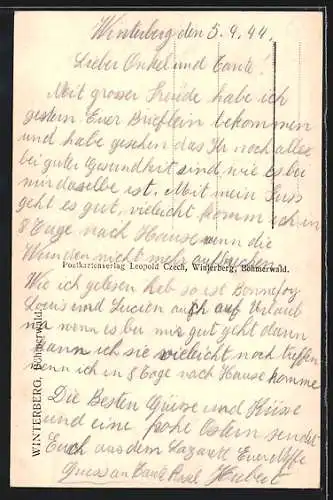 Winterberg den 5.4.44.
Lieber Onkel und Tante!
Mit grosser Freude habe ich
gestern Euer Brieflein bekommen
und habe gesehen das Ihr noch alle
bei guter Gesundheit sind, wie es bei
mir dasselbe ist. Mit mein Fuss
geht es gut, vieleicht komm ich in
8 Tage nach Hause wenn die
Wunden nicht mehr aufbrechen.
Postkartenverlag Leopold Czech, Winterberg, Böhmerwald.
Wie ich gelesen hab so ist
Louis und Lucien auch auf Urlaub
na wenn es bei mir gut geht dann
kann ich sie vieleicht noch treffen
wenn ich in 8 Tage nach Hause komme
Die Besten Grüsse und Küsse
und eine frohe Ostern sendet
Euch aus dem Lazarett Euer Neffe
Gruss an Tante Hubert
WINTERBERG, Böhmerwald.